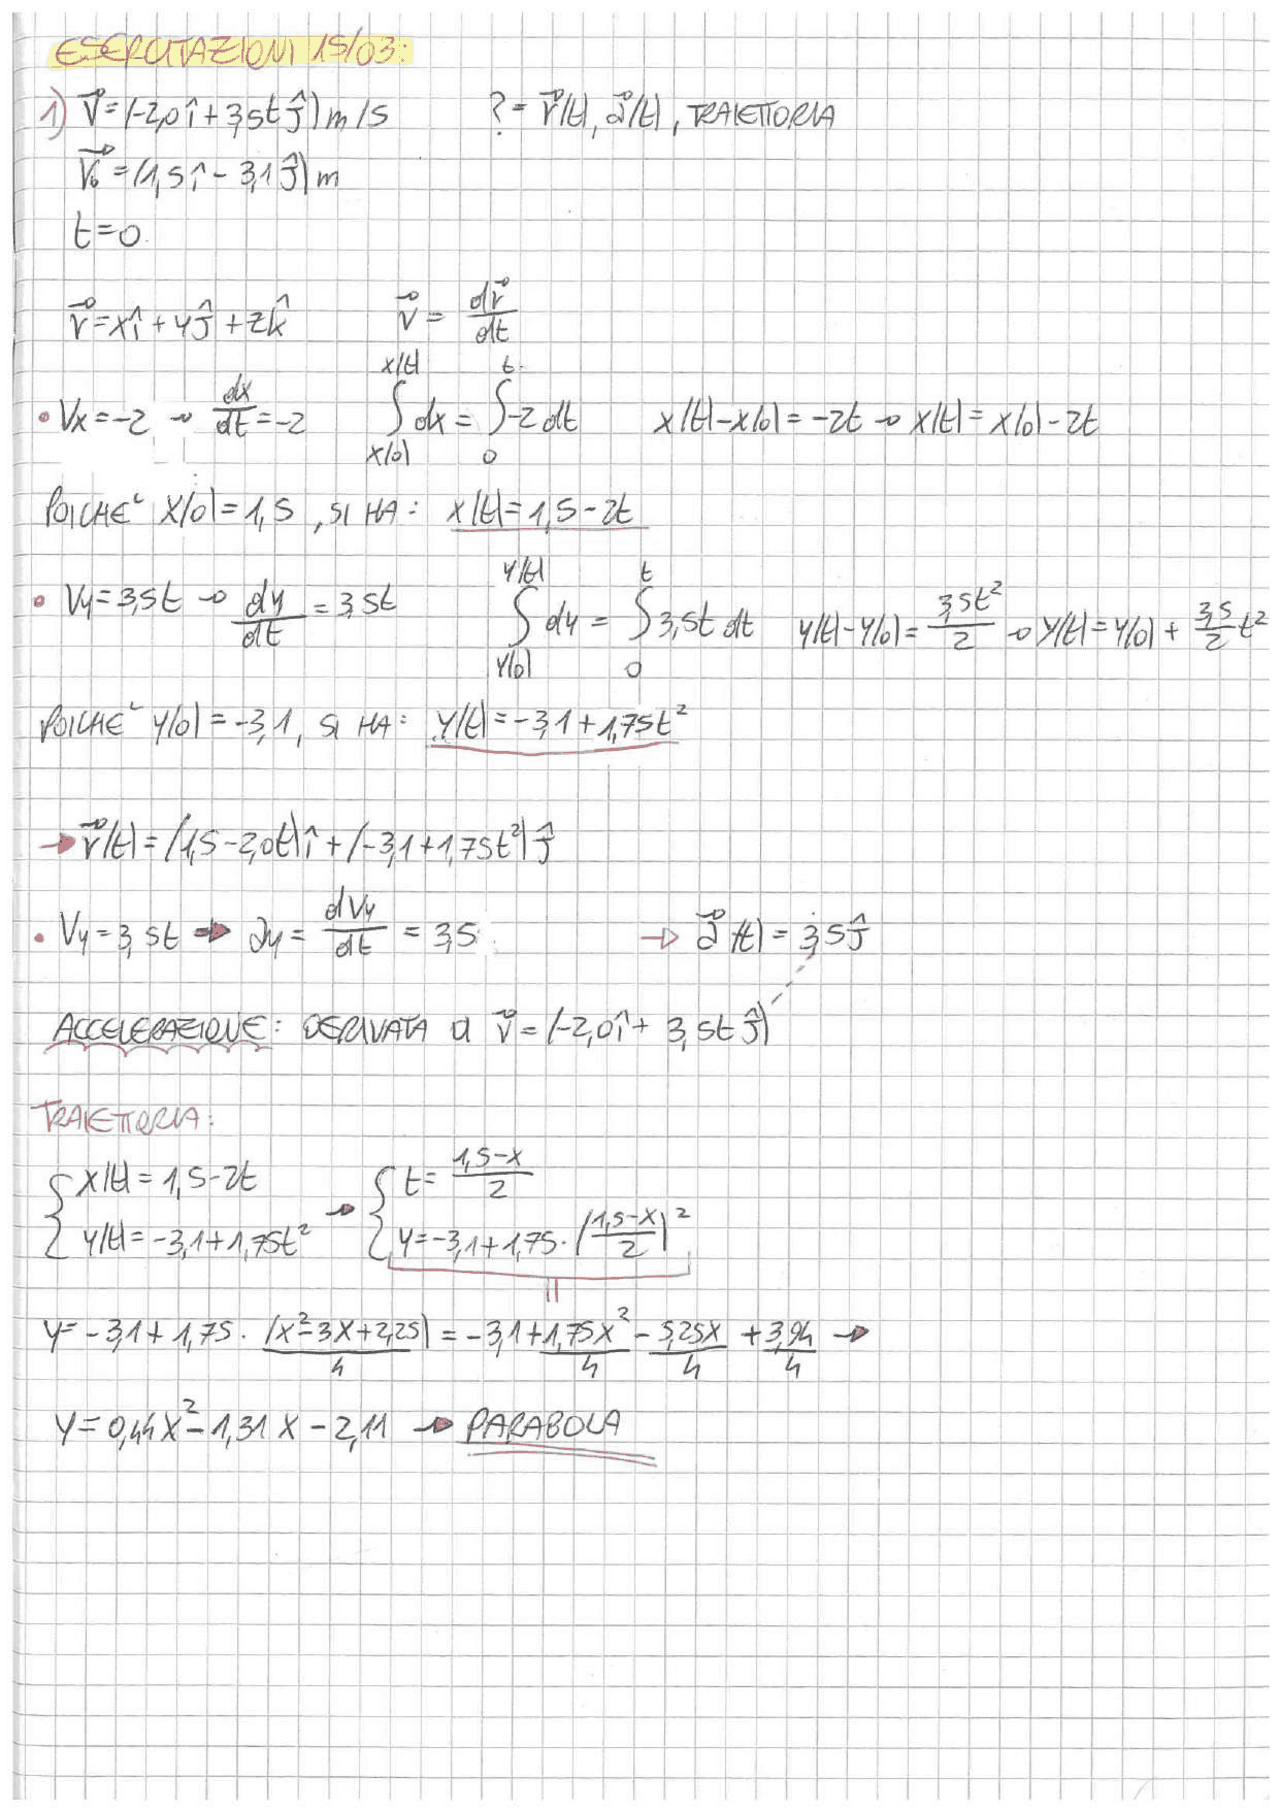 ESERCITAZIONI 15/03:
1) v⃗=(-2,0î+3,5tĵ)m/s ?= r⃗(t), a⃗(t), TRAIETTORIA
r⃗₀=(1,5î-3,1ĵ)m
t=0
r⃗=xî+yĵ+zk̂ v⃗=dr⃗/dt
• Vx=-2 → dx/dt=-2 ∫_{x(0)}^{x(t)} dx = ∫_0^t -2dt x(t)-x(0)=-2t → x(t)=x(0)-2t
POICHE' X(0)=1,5, SI HA: x(t)=1,5-2t
• Vy=3,5t → dy/dt=3,5t ∫_{y(0)}^{y(t)} dy = ∫_0^t 3,5t dt y(t)-y(0)=3,5t²/2 → y(t)=y(0)+3,5/2 t²
POICHE' y(0)=-3,1, SI HA: y(t)=-3,1+1,75t²
→ r⃗(t)=(1,5-2,0t)î+(-3,1+1,75t²)ĵ
• Vy=3,5t → ay=dVy/dt=3,5 → a⃗(t)=3,5ĵ
ACCELERAZIONE: DERIVATA DI v⃗=(-2,0î+3,5tĵ)
TRAIETTORIA:
{x(t)=1,5-2t → {t=(1,5-x)/2
y(t)=-3,1+1,75t² y=-3,1+1,75·((1,5-x)/2)²
y=-3,1+1,75·(x²-3x+2,25)/4=-3,1+1,75x²/4-5,25x/4+3,94/4 →
y=0,44x²-1,31x-2,11 → PARABOLA